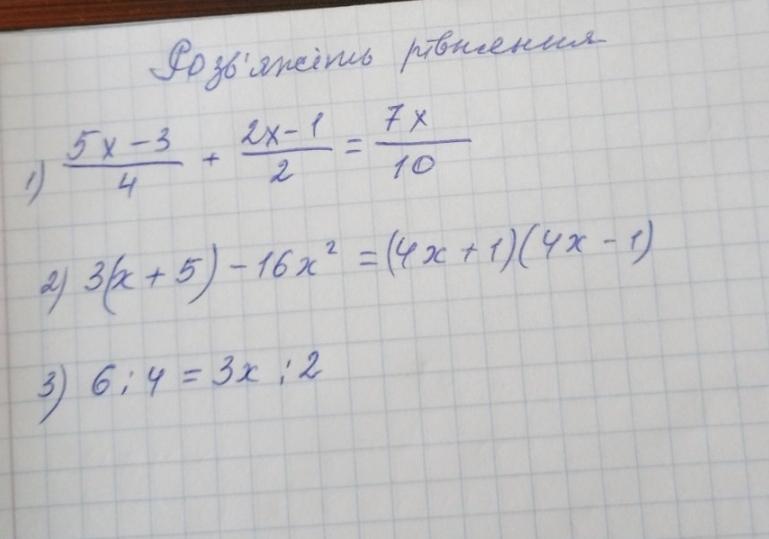 Розв'яжіть рівняння
1) (5x-3)/4 + (2x-1)/2 = 7x/10
2) 3(x+5)-16x² =(4x+1)(4x-1)
3) 6:4=3x:2